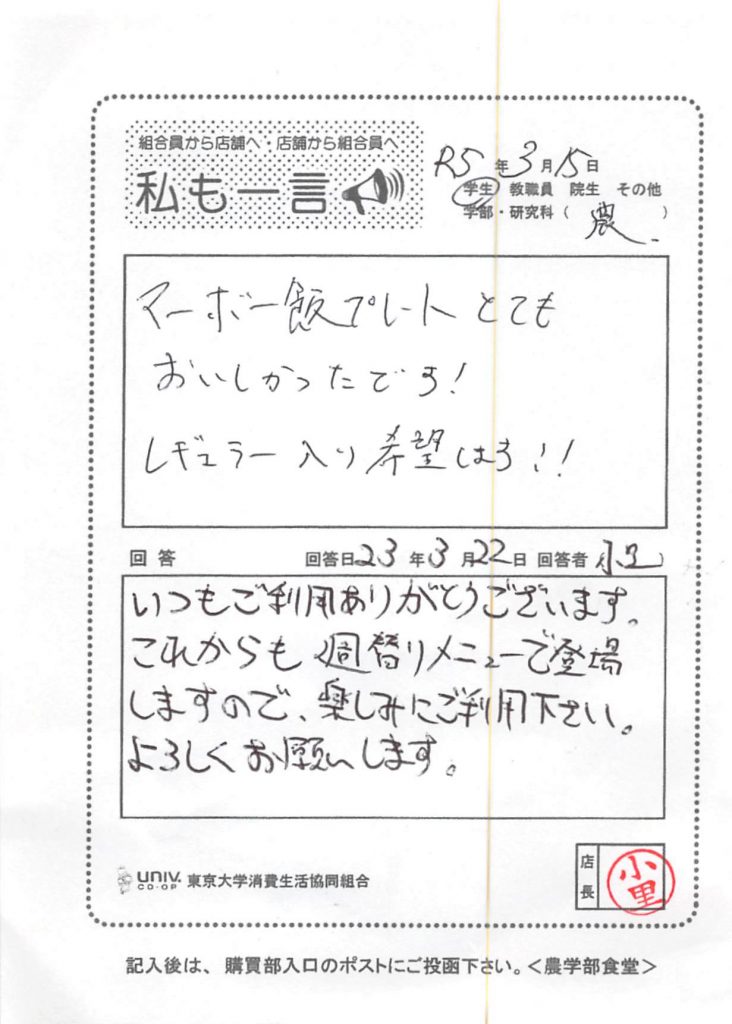 組合員から店舗へ・店舗から組合員へ
私も一言
R5年3月15日
学生 教職員 院生 その他
学部・研究科（ 農 ）
マーボー飯プレートとても
おいしかったです!
レギュラー入り希望します!!
回答 回答日23年3月22日 回答者 小里
いつもご利用ありがとうございます。
これからも週替りメニューで登場
しますので、楽しみにご利用下さい。
よろしくお願いします。
店長 小里
UNIV. CO-OP 東京大学消費生活協同組合
記入後は、購買部入口のポストにご投函下さい。＜農学部食堂＞